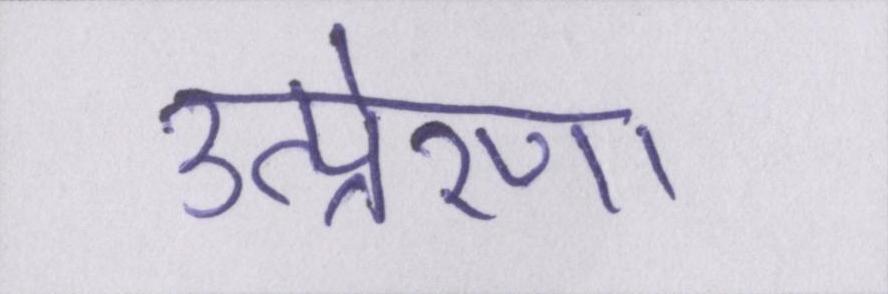 उत्प्रेरणा